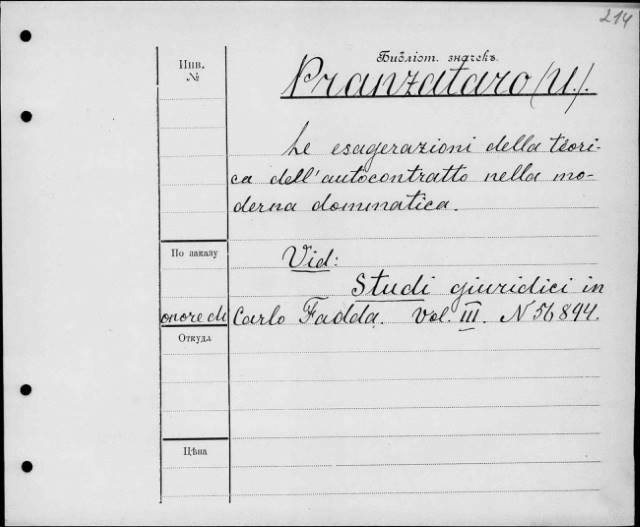 214
Библіот. значекъ
Инв.
№
Pranzataro (U.).
Le esagerazioni della teori-
ca dell'autocontratto nella mo-
derna dommatica.
По заказу
Vid:
Studi giuridici in
onore di Carlo Fadda. vol. III. N 56894.
Откуда
Цѣна